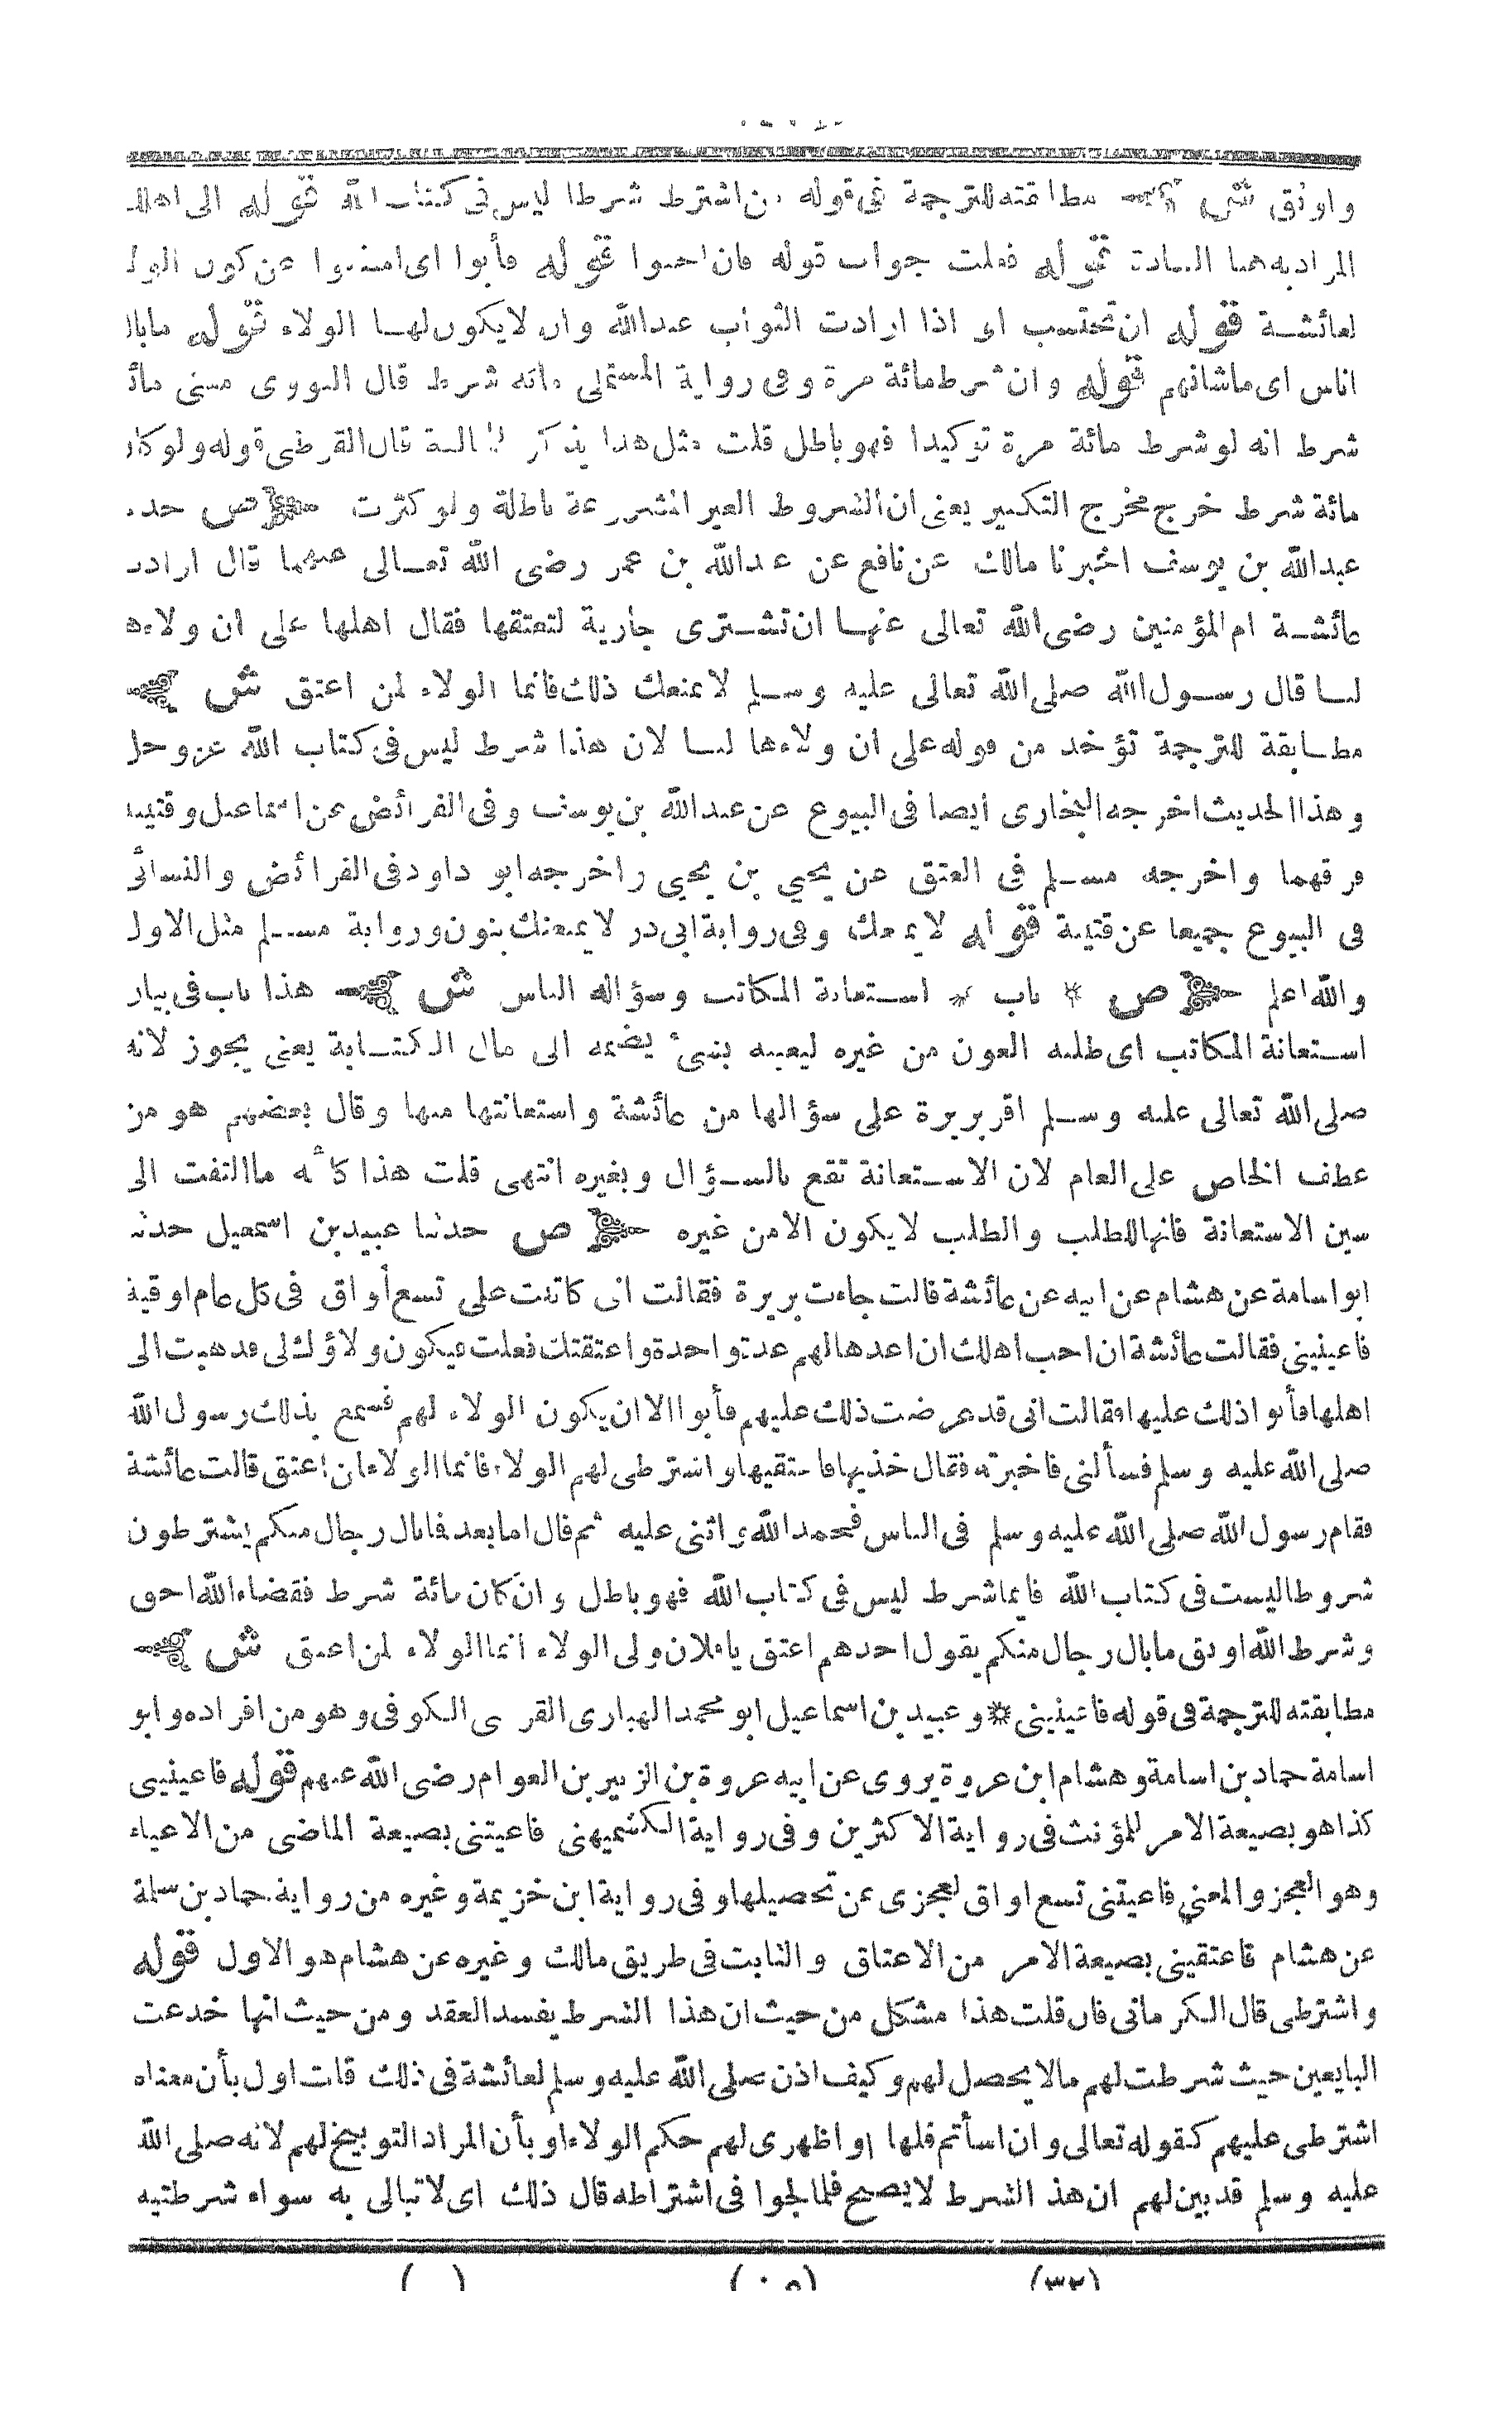 واوثق ش مطابقته للترجمة فى قوله من اشترط شرطا ليس فى كتاب الله قوله الى اهلك
المراد به هنا السادة قوله فعلت جواب قوله فان احبوا قوله فأبوا اى امتنعوا عن كون الولاء
لعائشة قوله ان تحتسب اى اذا ارادت الثواب عندالله وان لايكون لها الولاء قوله مابال
اناس اى ماشانهم قوله وان شرط مائة مرة وفى رواية المستملى مائة شرط قال النووى معنى مائة
شرط انه لو شرط مائة مرة توكيدا فهو باطل قلت مثل هذا يذكر للمبالغة قال القرطبى قوله ولو كان
مائة شرط خرج مخرج التكثير يعنى ان الشروط الغير المشروعة باطلة ولو كثرت ص حدثنا
عبدالله بن يوسف اخبرنا مالك عن نافع عن عبدالله بن عمر رضى الله تعالى عنهما قال ارادت
عائشة ام المؤمنين رضى الله تعالى عنها ان تشترى جارية لتعتقها فقال اهلها على ان ولاءها
لنا قال رسول الله صلى الله تعالى عليه وسلم لايمنعك ذلك فانما الولاء لمن اعتق ش
مطابقة للترجمة تؤخذ من قوله على ان ولاءها لنا لان هذا شرط ليس فى كتاب الله عز وجل
وهذا الحديث اخرجه البخارى ايضا فى البيوع عن عبدالله بن يوسف وفى الفرائض عن اسماعيل وقتيبة
فرقهما واخرجه مسلم فى العتق عن يحيى بن يحيى واخرجه ابو داود فى الفرائض والنسائى
فى البيوع جميعا عن قتيبة قوله لايمنعك وفى رواية ابى ذر لايمنعنك بنون ورواية مسلم مثل الاول
والله اعلم ص * باب * استعانة المكاتب وسؤاله الناس ش هذا باب فى بيان
استعانة المكاتب اى طلبه العون من غيره ليعينه بشىء يضمه الى مال الكتابة يعنى يجوز لانه
صلى الله تعالى عليه وسلم اقر بريرة على سؤالها من عائشة واستعانتها منها وقال بعضهم هو من
عطف الخاص على العام لان الاستعانة تقع بالسؤال وبغيره انتهى قلت هذا كأنه ماالتفت الى
سين الاستعانة فانها للطلب والطلب لايكون الا من غيره ص حدثنا عبيد بن اسمعيل حدثنا
ابو اسامة عن هشام عن ابيه عن عائشة قالت جاءت بريرة فقالت انى كاتبت على تسع أواق فى كل عام اوقية
فاعينينى فقالت عائشة ان احب اهلك ان اعدها لهم عدة واحدة واعتقتك فعلت فيكون ولاؤك لى فذهبت الى
اهلها فأبوا ذلك عليها فقالت انى قد عرضت ذلك عليهم فأبوا الا ان يكون الولاء لهم فسمع بذلك رسول الله
صلى الله عليه وسلم فسألنى فاخبرته فقال خذيها فاعتقيها واشترطى لهم الولاء فانما الولاء لمن اعتق قالت عائشة
فقام رسول الله صلى الله عليه وسلم فى الناس فحمد الله واثنى عليه ثم قال اما بعد فما بال رجال منكم يشترطون
شروطا ليست فى كتاب الله فايما شرط ليس فى كتاب الله فهو باطل وان كان مائة شرط فقضاء الله احق
وشرط الله اوثق مابال رجال منكم يقول احدهم اعتق يافلان ولى الولاء انما الولاء لمن اعتق ش
مطابقته للترجمة فى قوله فاعينينى * وعبيد بن اسماعيل ابو محمد الهبارى القرشى الكوفى وهو من افراده وابو
اسامة حماد بن اسامة وهشام ابن عروة يروى عن ابيه عروة بن الزبير بن العوام رضى الله عنهم قوله فاعينينى
كذا هو بصيعة الامر للمؤنث فى رواية الاكثرين وفى رواية الكشميهنى فاعيتنى بصيعة الماضى من الاعياء
وهو العجز والمعنى فاعيتنى تسع اواق لعجزى عن تحصيلها وفى رواية ابن خزيمة وغيره من رواية حماد بن سلمة
عن هشام فاعتقينى بصيعة الامر من الاعتاق والثابت فى طريق مالك وغيره عن هشام هو الاول قوله
واشترطى قال الكرمانى فان قلت هذا مشكل من حيث ان هذا الشرط يفسد العقد ومن حيث انها خدعت
البايعين حيث شرطت لهم مالا يحصل لهم وكيف اذن صلى الله عليه وسلم لعائشة فى ذلك قلت اول بأن معناه
اشترطى عليهم كقوله تعالى وان اسأتم فلها او اظهرى لهم حكم الولاء او بأن المراد التوبيخ لهم لانه صلى الله
عليه وسلم قد بين لهم ان هذ الشرط لايصح فلما لجوا فى اشتراطه قال ذلك اى لاتبالى به سواء شرطتيه
(٣٢)